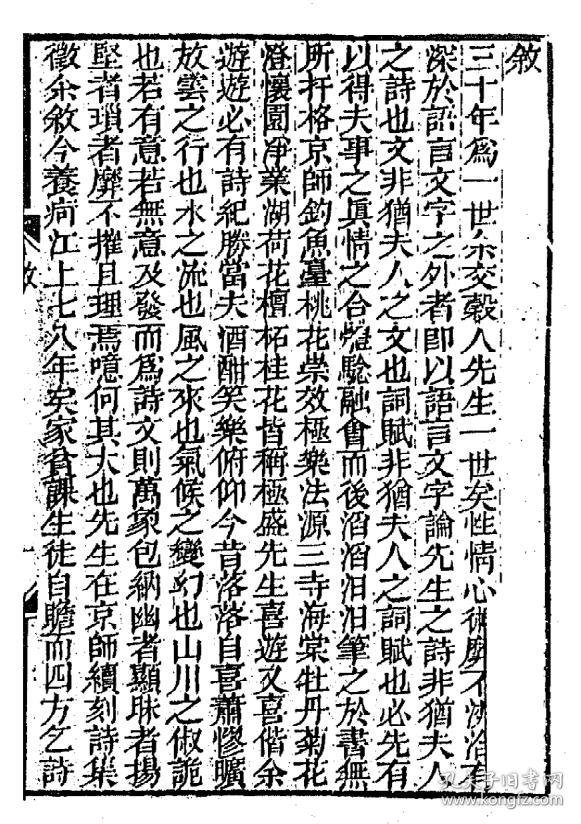 敘
三十年爲一世余交榖人先生一世矣性情心術靡不浹洽有
深於語言文字之外者卽以語言文字論先生之詩非猶夫人
之詩也文非猶夫人之文也詞賦非猶夫人之詞賦也必先有
以得夫事之眞情之合體騐融會而後滔滔汨汨筆之於書無
所扞格京師釣魚臺桃花崇效極樂法源三寺海棠牡丹菊花
澄懷園淨業湖荷花檀柘桂花皆稱極盛先生喜遊又喜偕余
遊遊必有詩紀勝當夫酒酣笑樂俯仰今昔落落自喜蕭慘曠
放雲之行也水之流也風之來也氣候之變幻也山川之俶詭
也若有意若無意及發而爲詩文則萬象包納幽者顯眜者揚
堅者瑣者靡不摧且理焉噫何其大也先生在京師續刻詩集
徵余敘今養疴江上七八年矣家貧課生徒自贍而四方乞詩
敘
孔夫子旧书网